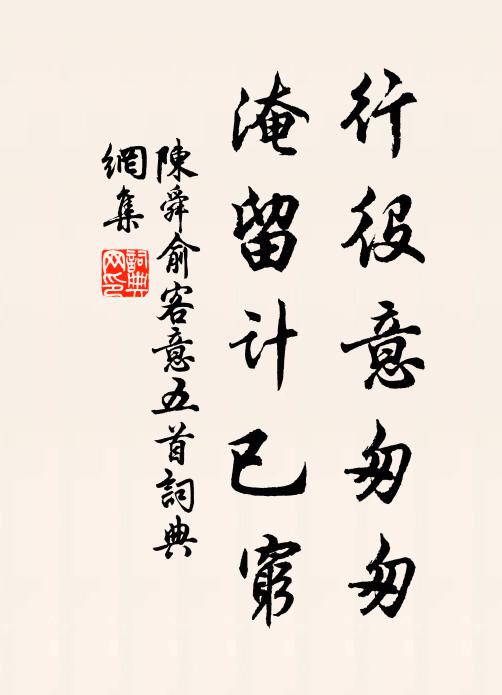 行役意匆匆
淹留计已窮
陳舜俞客意五首詞典
網集
詞典网印